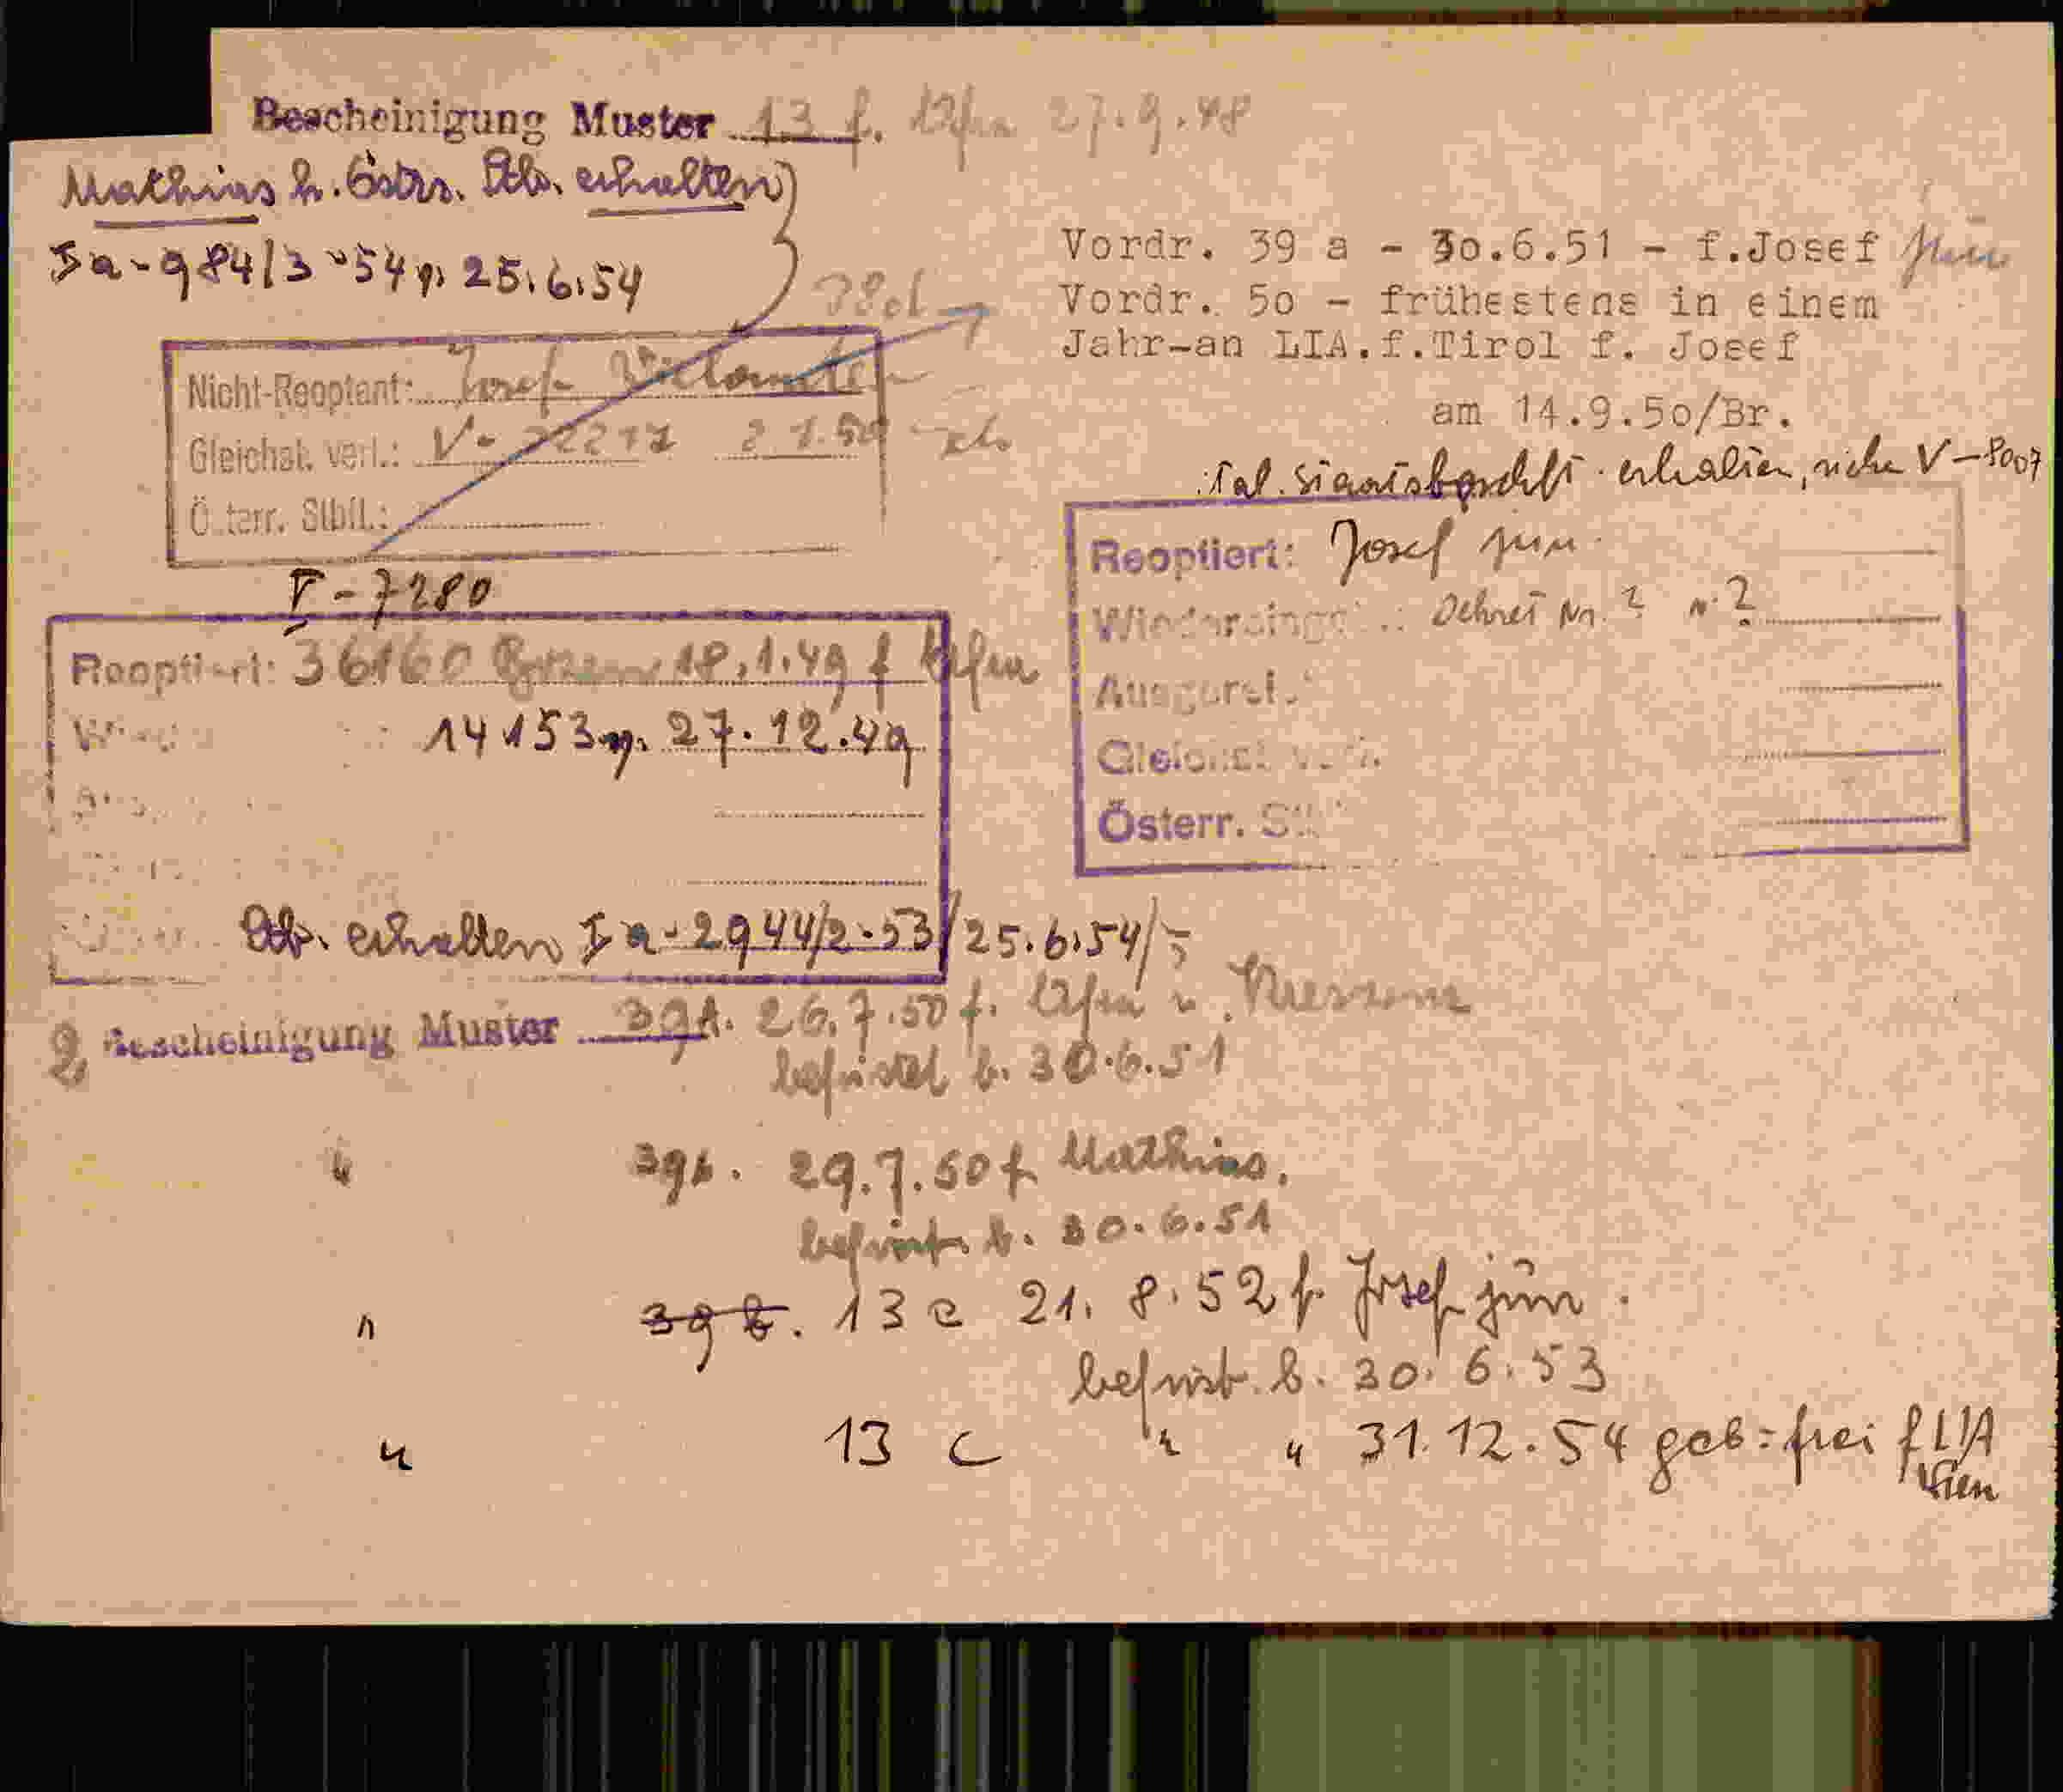 Bescheinigung Muster 13 f. Afra 27.9.48
Mathias h. östr. Stb. erhalten
Ia-984/3-54 v. 25.6.54
Vordr. 39 a - 30.6.51 - f.Josef jun
Vordr. 5o - frühestens in einem
Jahr-an LIA.f.Tirol f. Josef
am 14.9.5o/Br.
Nicht-Reoptant: Josef
Gleichst. verl.: V- 2.1.50
Österr. Stbft.:
ital. Staatsbgschft. erhalten, siehe V-8007
Reoptiert: Josef jun.
Dekret Nr. ? v. ?
Österr.
V-7280
Reoptiert: 36160 Bozen 18.1.49 f Afra
14153 v. 27.12.49
Stb. erhalten Ia-2944/2-53/25.6.54/
2, Bescheinigung Muster 39A. 26.7.50 f. Afra u.
befristet b. 30.6.51
" 39A. 29.7.50 f Mathias.
befrist. b. 30.6.51
" 39 b. 13 c 21.8.52 f. Josef jün.
befrist. b. 30.6.53
" 13 c " " 31.12.54 geb=frei f LIA
Wien